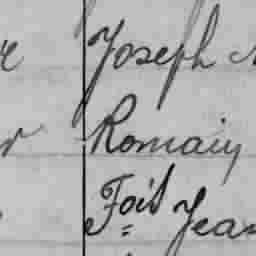 Joseph
Romain
Foit Jean